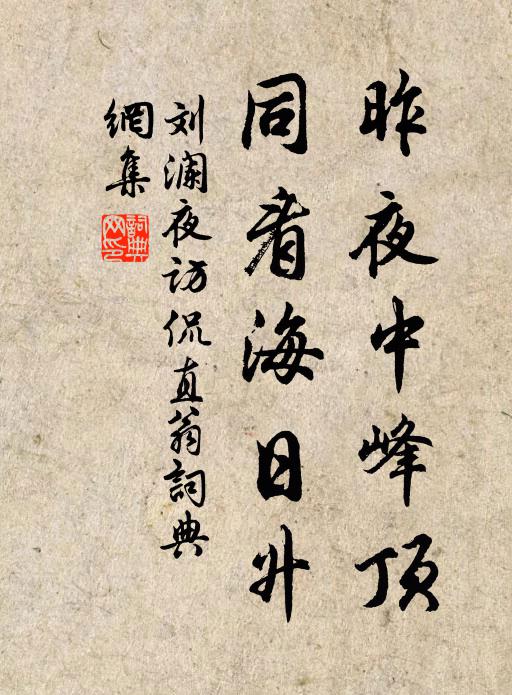 昨夜中峰顶
同看海日升
刘澜夜访侃直翁詞典
網集
詞典網印